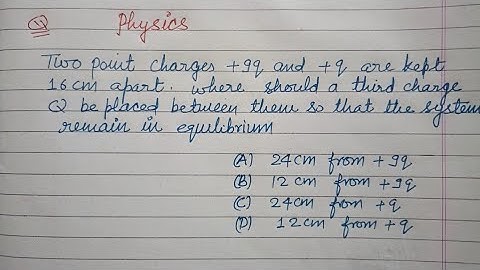 Q Physics
Two point charges +9q and +q are kept
16cm apart. where should a third charge
Q be placed between them so that the system
remain in equilibrium
(A) 24cm from +9q
(B) 12cm from +9q
(C) 24cm from +q
(D) 12cm from +q